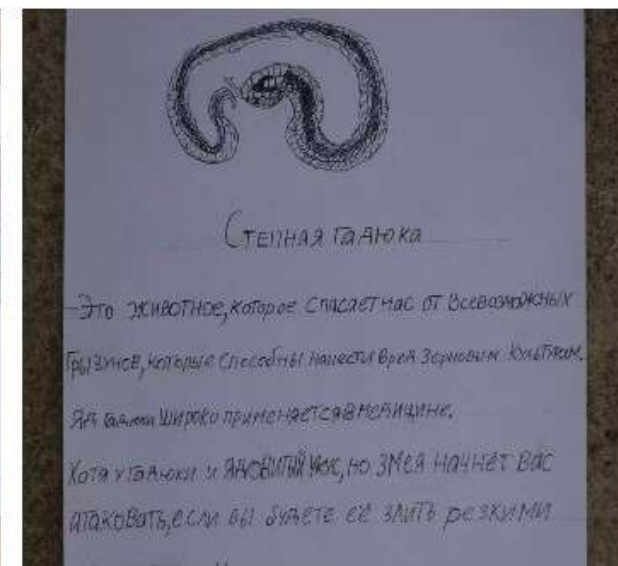 Степная гадюка
Это животное, которое спасает нас от всевозможных
грызунов, которые способны нанести вред зерновым культурам.
Яд гадюки широко применяется в медицине.
Хотя у гадюки и ядовитый укус, но змея начнёт вас
атаковать, если вы будете её злить резкими